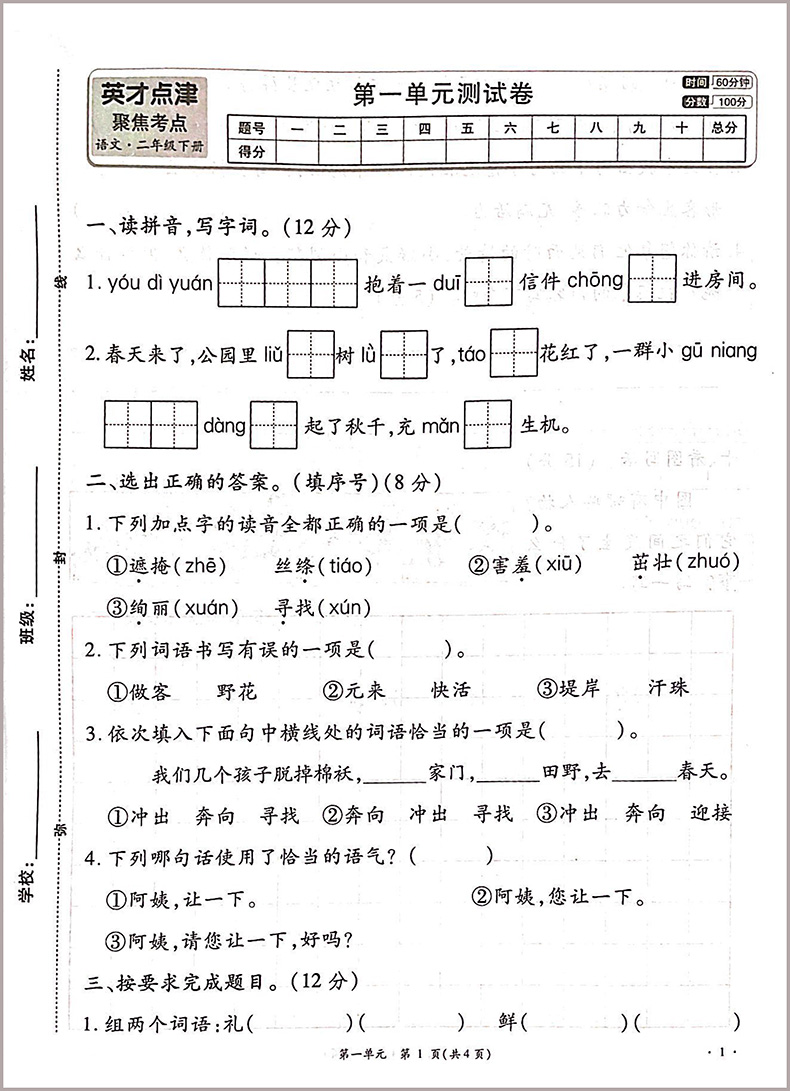 英才点津
聚焦考点
语文·二年级下册
第一单元测试卷
时间 60分钟
分数 100分
题号 一 二 三 四 五 六 七 八 九 十 总分
得分
一、读拼音,写字词。(12分)
1. yóu dì yuán 抱着一 duī 信件 chōng 进房间。
2. 春天来了,公园里 liǔ 树 lǜ 了, táo 花红了,一群小 gū niang
dàng 起了秋千,充 mǎn 生机。
二、选出正确的答案。(填序号)(8分)
1. 下列加点字的读音全都正确的一项是( )。
①遮掩(zhē) 丝绦(tiáo) ②害羞(xiū) 茁壮(zhuó)
③绚丽(xuán) 寻找(xún)
2. 下列词语书写有误的一项是( )。
①做客 野花 ②元来 快活 ③堤岸 汗珠
3. 依次填入下面句中横线处的词语恰当的一项是( )。
我们几个孩子脱掉棉袄,______家门,______田野,去______春天。
①冲出 奔向 寻找 ②奔向 冲出 寻找 ③冲出 奔向 迎接
4. 下列哪句话使用了恰当的语气?( )
①阿姨,让一下。 ②阿姨,您让一下。
③阿姨,请您让一下,好吗?
三、按要求完成题目。(12分)
1. 组两个词语:礼( )( ) 鲜( )( )
第一单元 第1页(共4页)
·1·
姓名:
班级:
学校:
线
封
弥